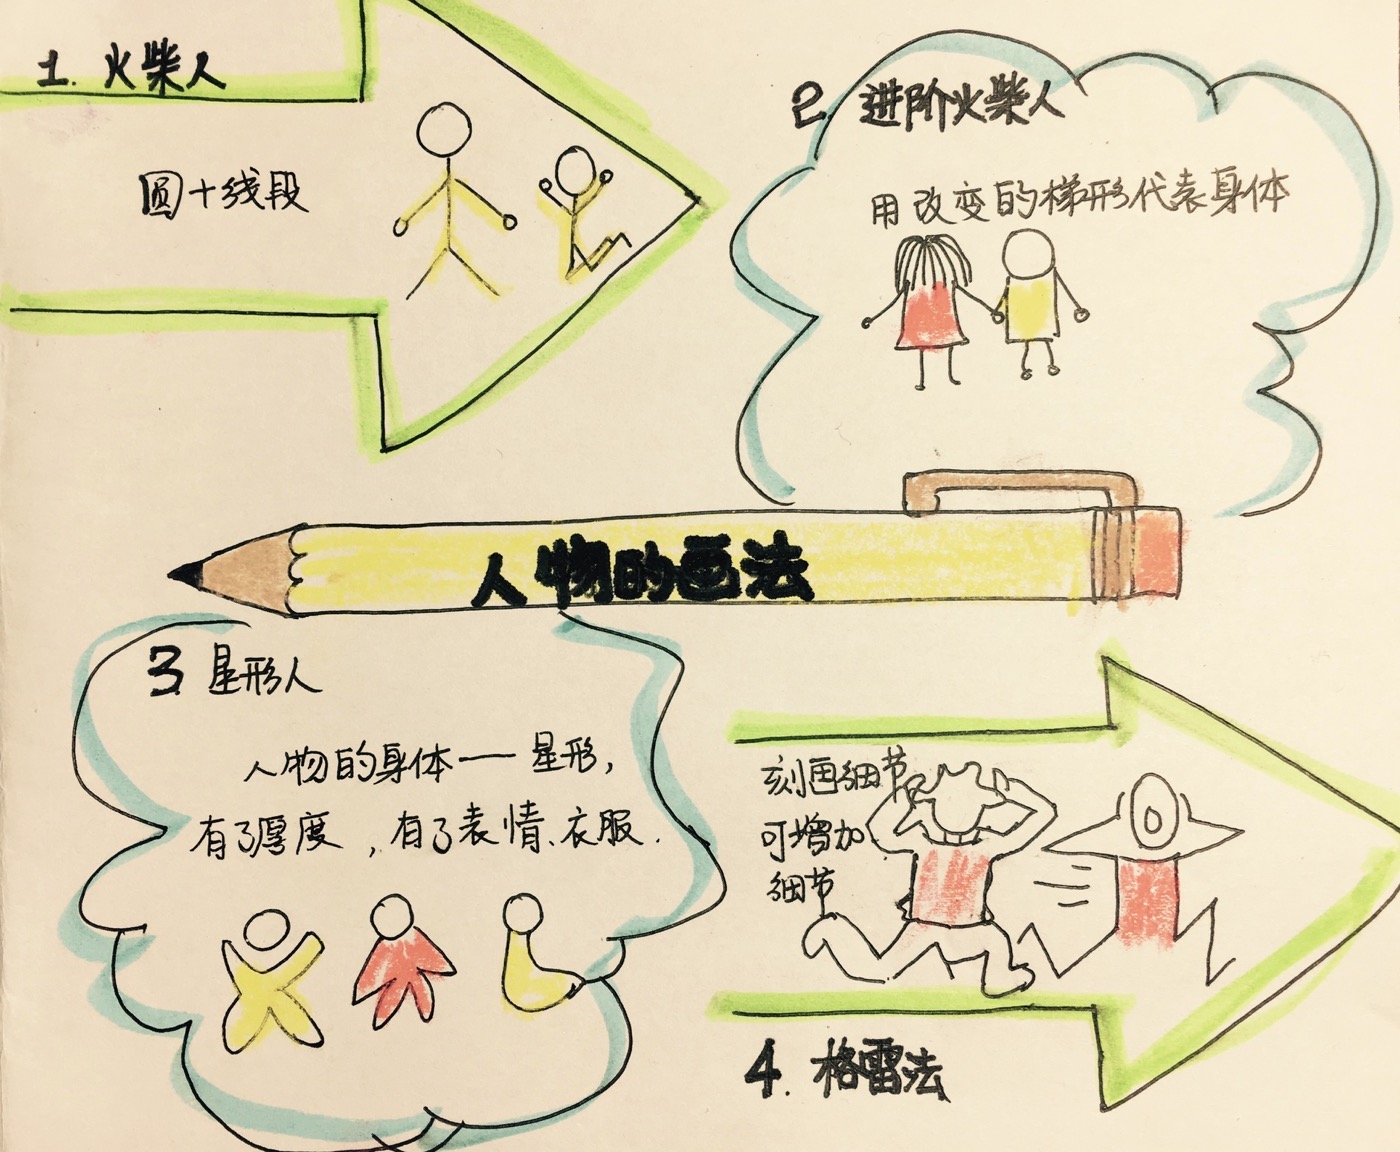 1. 火柴人
圆+线段
2. 进阶火柴人
用改变的梯形代表身体
人物的画法
3 星形人
人物的身体——星形,
有了厚度,有了表情、衣服.
刻画细节
可增加
细节
4. 格雷法